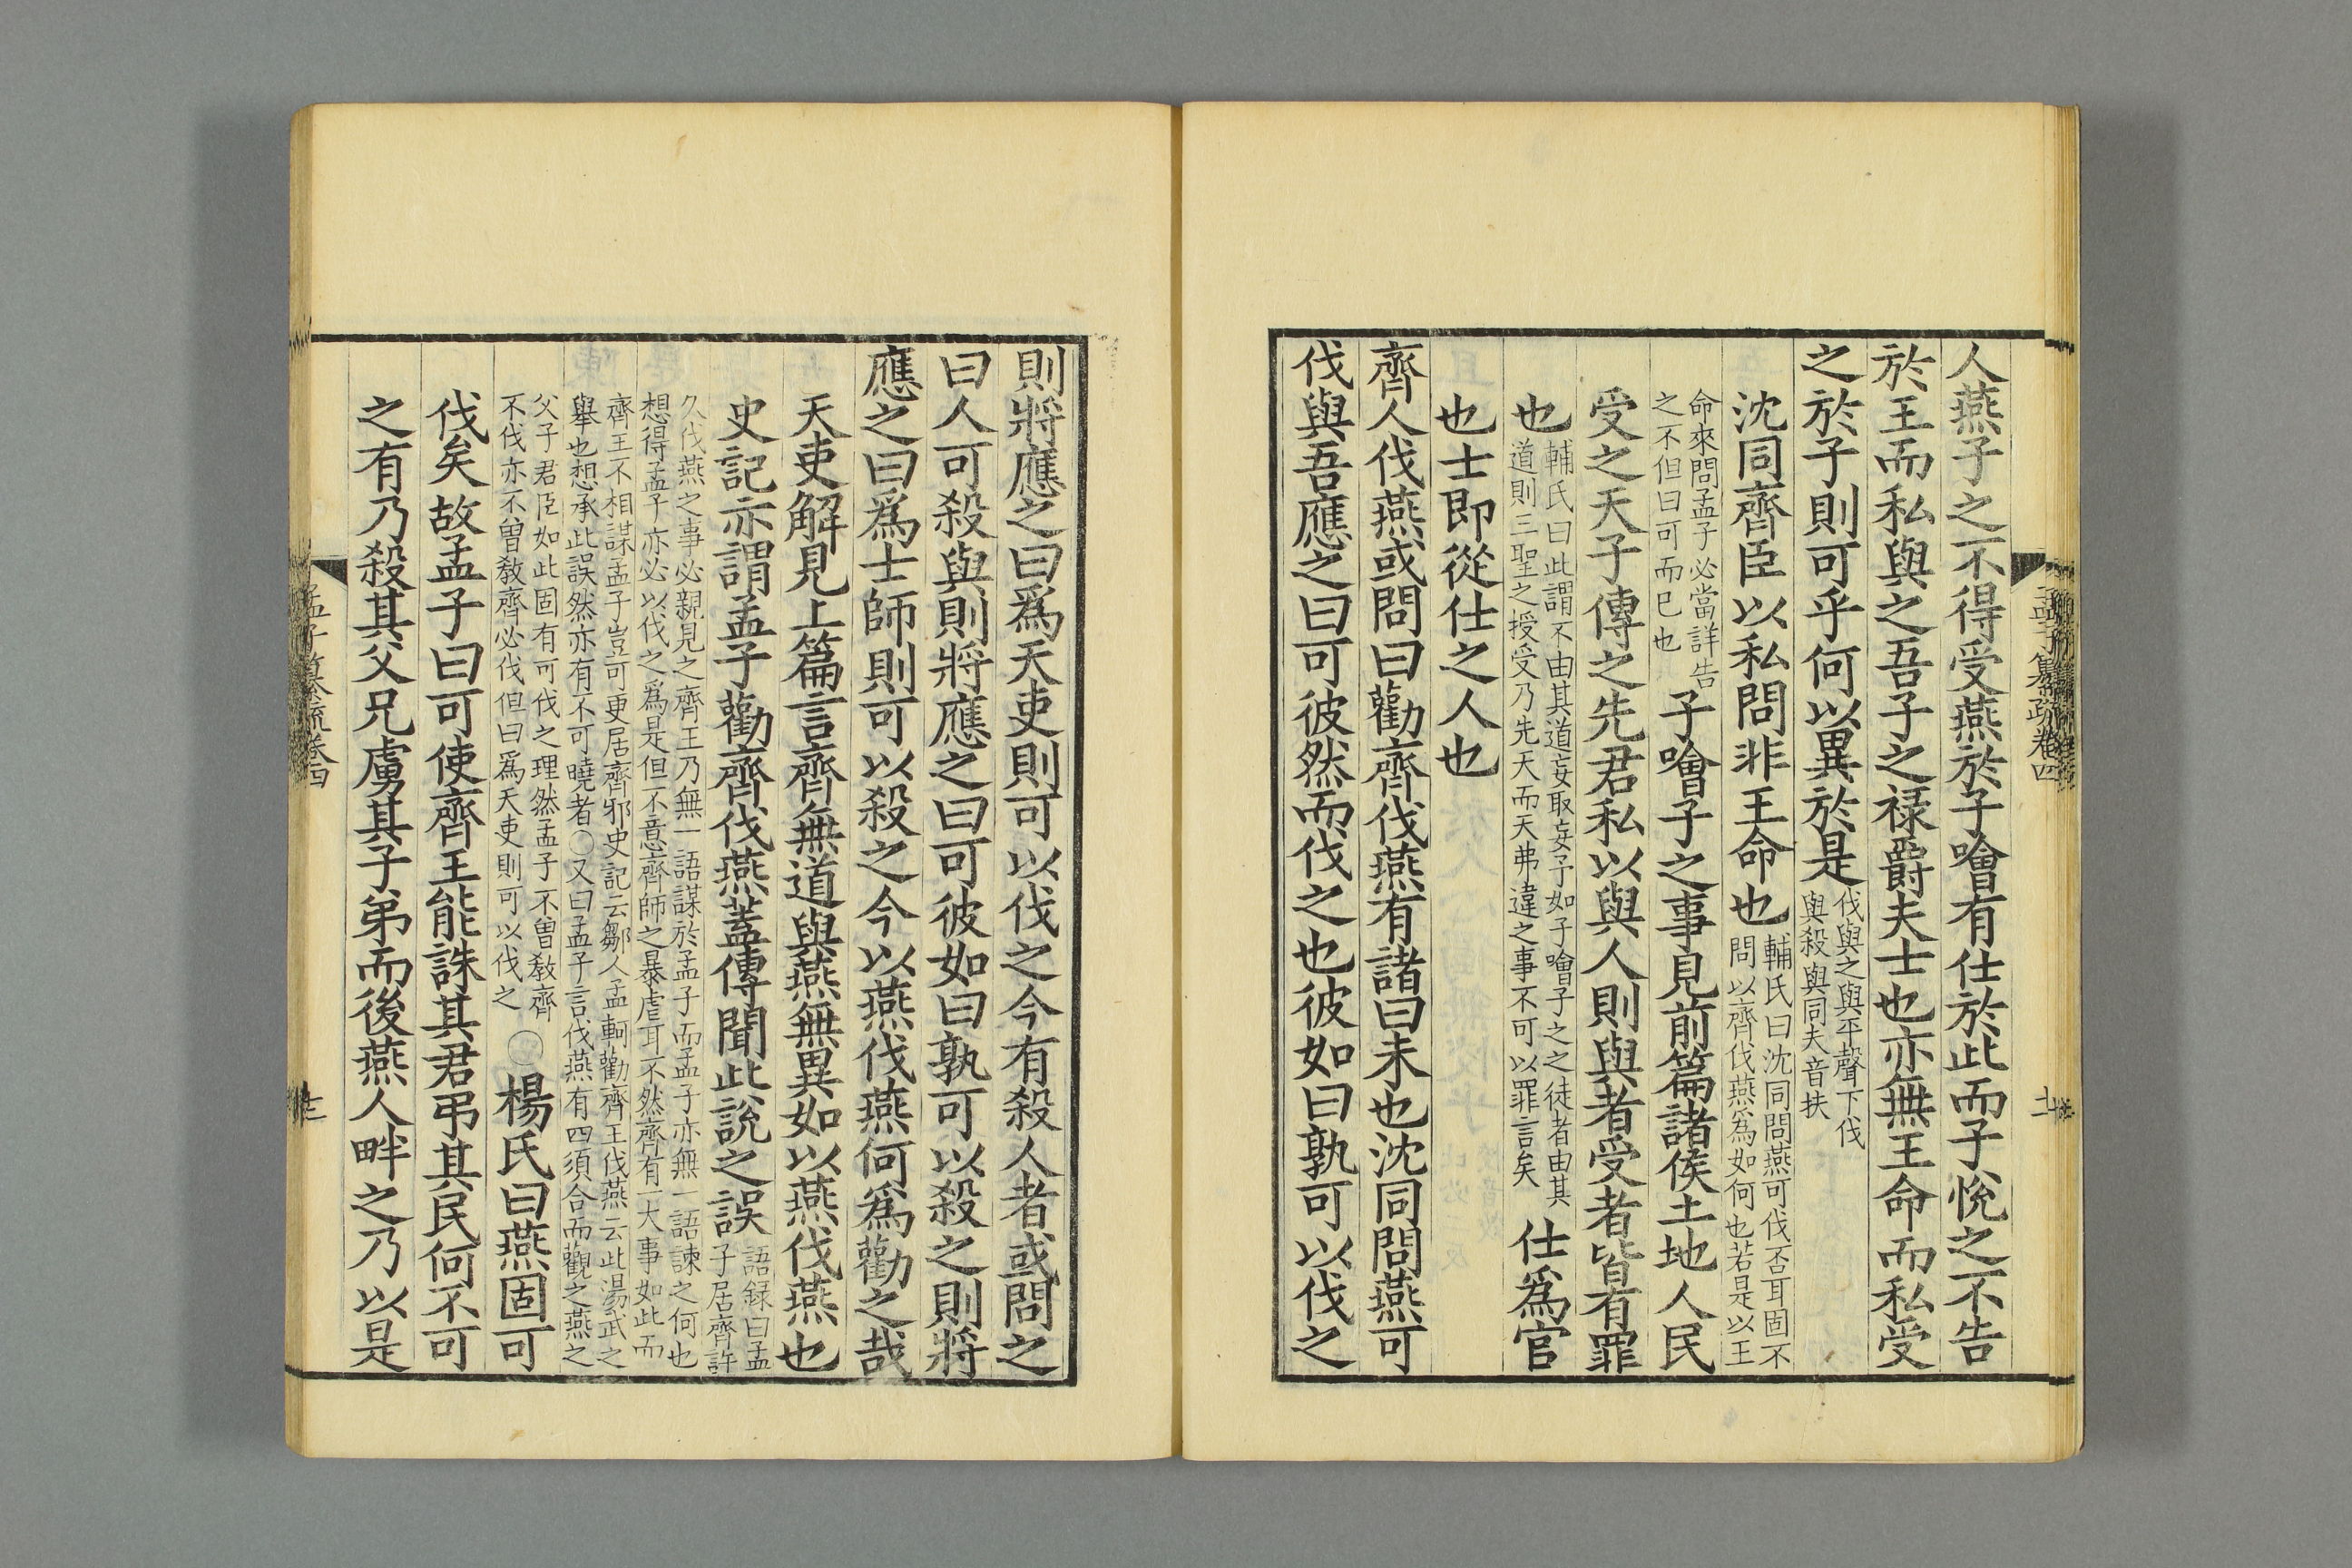 人燕子之不得受燕於子噲有仕於此而子悅之不告
於王而私與之吾子之祿爵夫士也亦無王命而私受
之於子則可乎何以異於是
伐與之與平聲下伐
與殺與同夫音扶
沈同齊臣以私問非王命也
輔氏曰沈同問燕可伐否耳固不
問以齊伐燕爲如何也若是以王
命來問孟子必當詳告
之不但曰可而已也
子噲子之事見前篇諸侯土地人民
受之天子傳之先君私以與人則與者受者皆有罪
也
輔氏曰此謂不由其道妄取妄予如子噲子之之徒者由其
道則三聖之授受乃先天而天弗違之事不可以罪言矣
仕爲官
也士即從仕之人也
齊人伐燕或問曰勸齊伐燕有諸曰未也沈同問燕可
伐與吾應之曰可彼然而伐之也彼如曰孰可以伐之
孟子纂疏卷四
則將應之曰爲天吏則可以伐之今有殺人者或問之
曰人可殺與則將應之曰可彼如曰孰可以殺之則將
應之曰爲士師則可以殺之今以燕伐燕何爲勸之哉
天吏解見上篇言齊無道與燕無異如以燕伐燕也
史記亦謂孟子勸齊伐燕蓋傳聞此說之誤
語録曰孟
子居齊許
久伐燕之事必親見之齊王乃無一語謀於孟子而孟子亦無一語諫之何也
想得孟子亦必以伐之爲是但不意齊師之暴虐耳不然齊有一大事如此而
齊王不相謀孟子豈可更居齊邪史記云鄒人孟軻勸齊王伐燕云此湯武之
舉也想承此誤然亦有不可曉者○又曰孟子言伐燕有四須合而觀之燕之
父子君臣如此固有可伐之理然孟子不曾教齊
不伐亦不曾教齊必伐但曰爲天吏則可以伐之
○楊氏曰燕固可
伐矣故孟子曰可使齊王能誅其君弔其民何不可
之有乃殺其父兄虜其子弟而後燕人畔之乃以是
孟子纂疏卷四